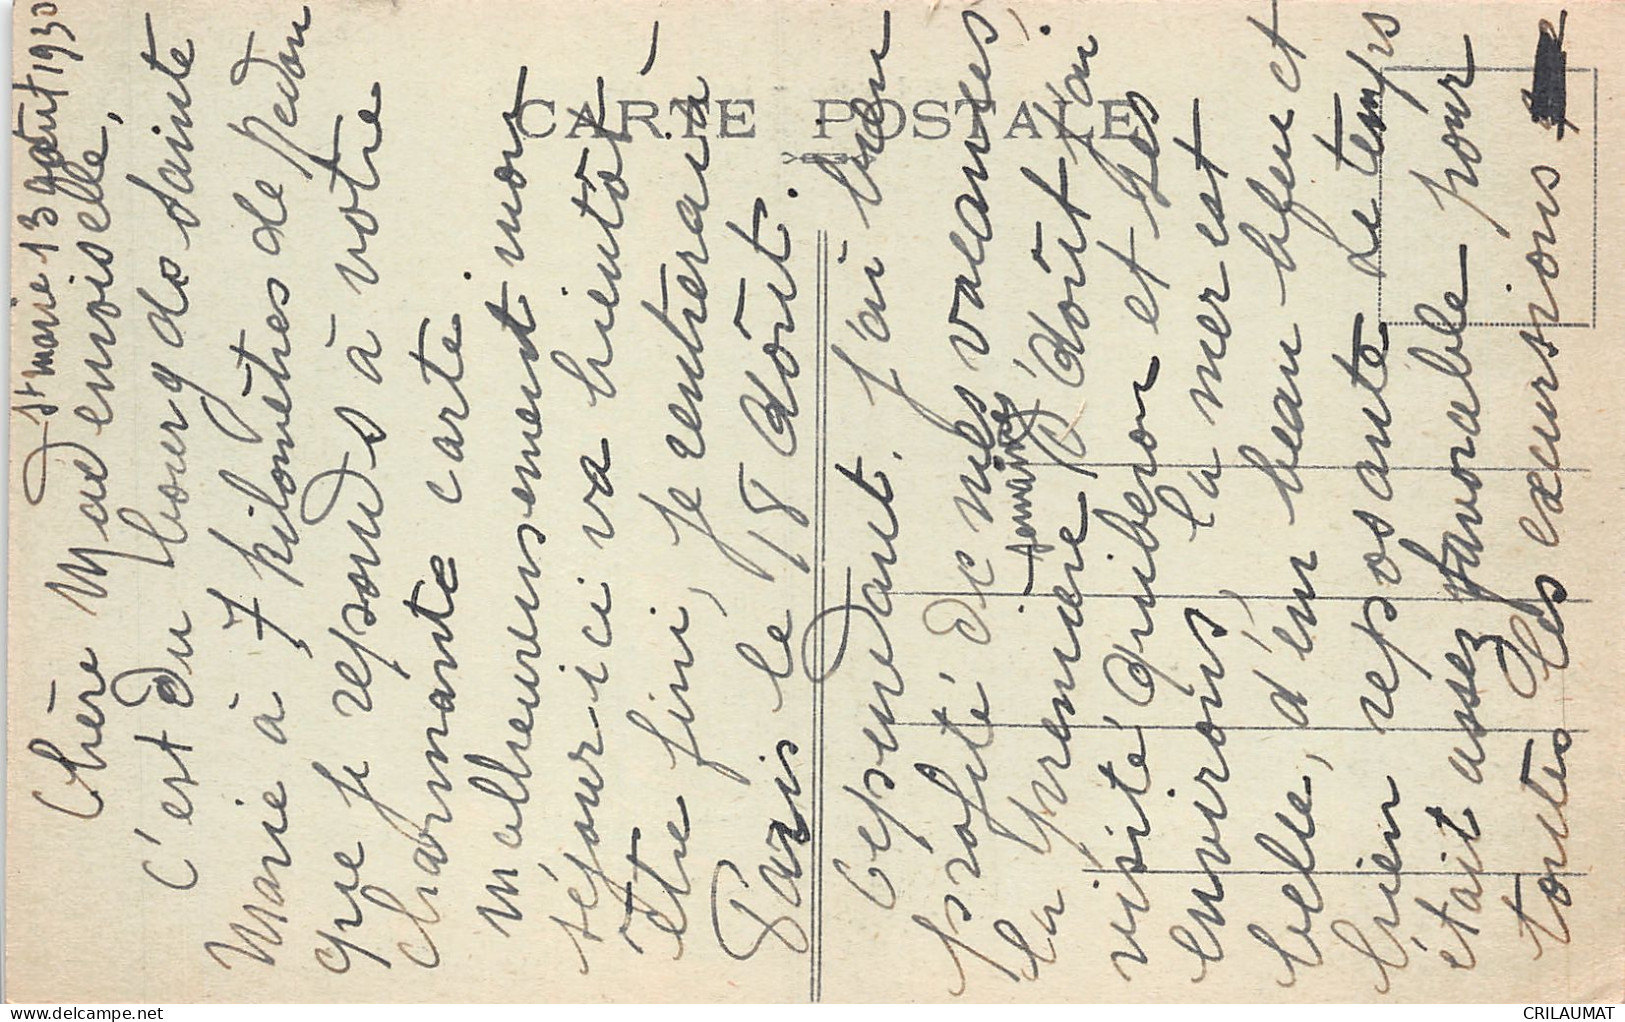 St Marie 13 août 1930
Chère Mademoiselle,
C'est du bourg de Sainte
Marie à 7 kilomètres de Redon
que je réponds à votre
charmante carte.
Malheureusement mon
séjour ici va bientôt
être fini, je rentrerai à
Paris le 18 Août.
Cependant, j'ai bien
profité de mes vacances,
la première semaine d'Août j'ai
visité Quiberon et ses
environs, la mer est
belle, d'un beau bleu et
bien reposante Le temps
était assez favorable pour
toutes les excursions
CARTE POSTALE
CRILAUMAT